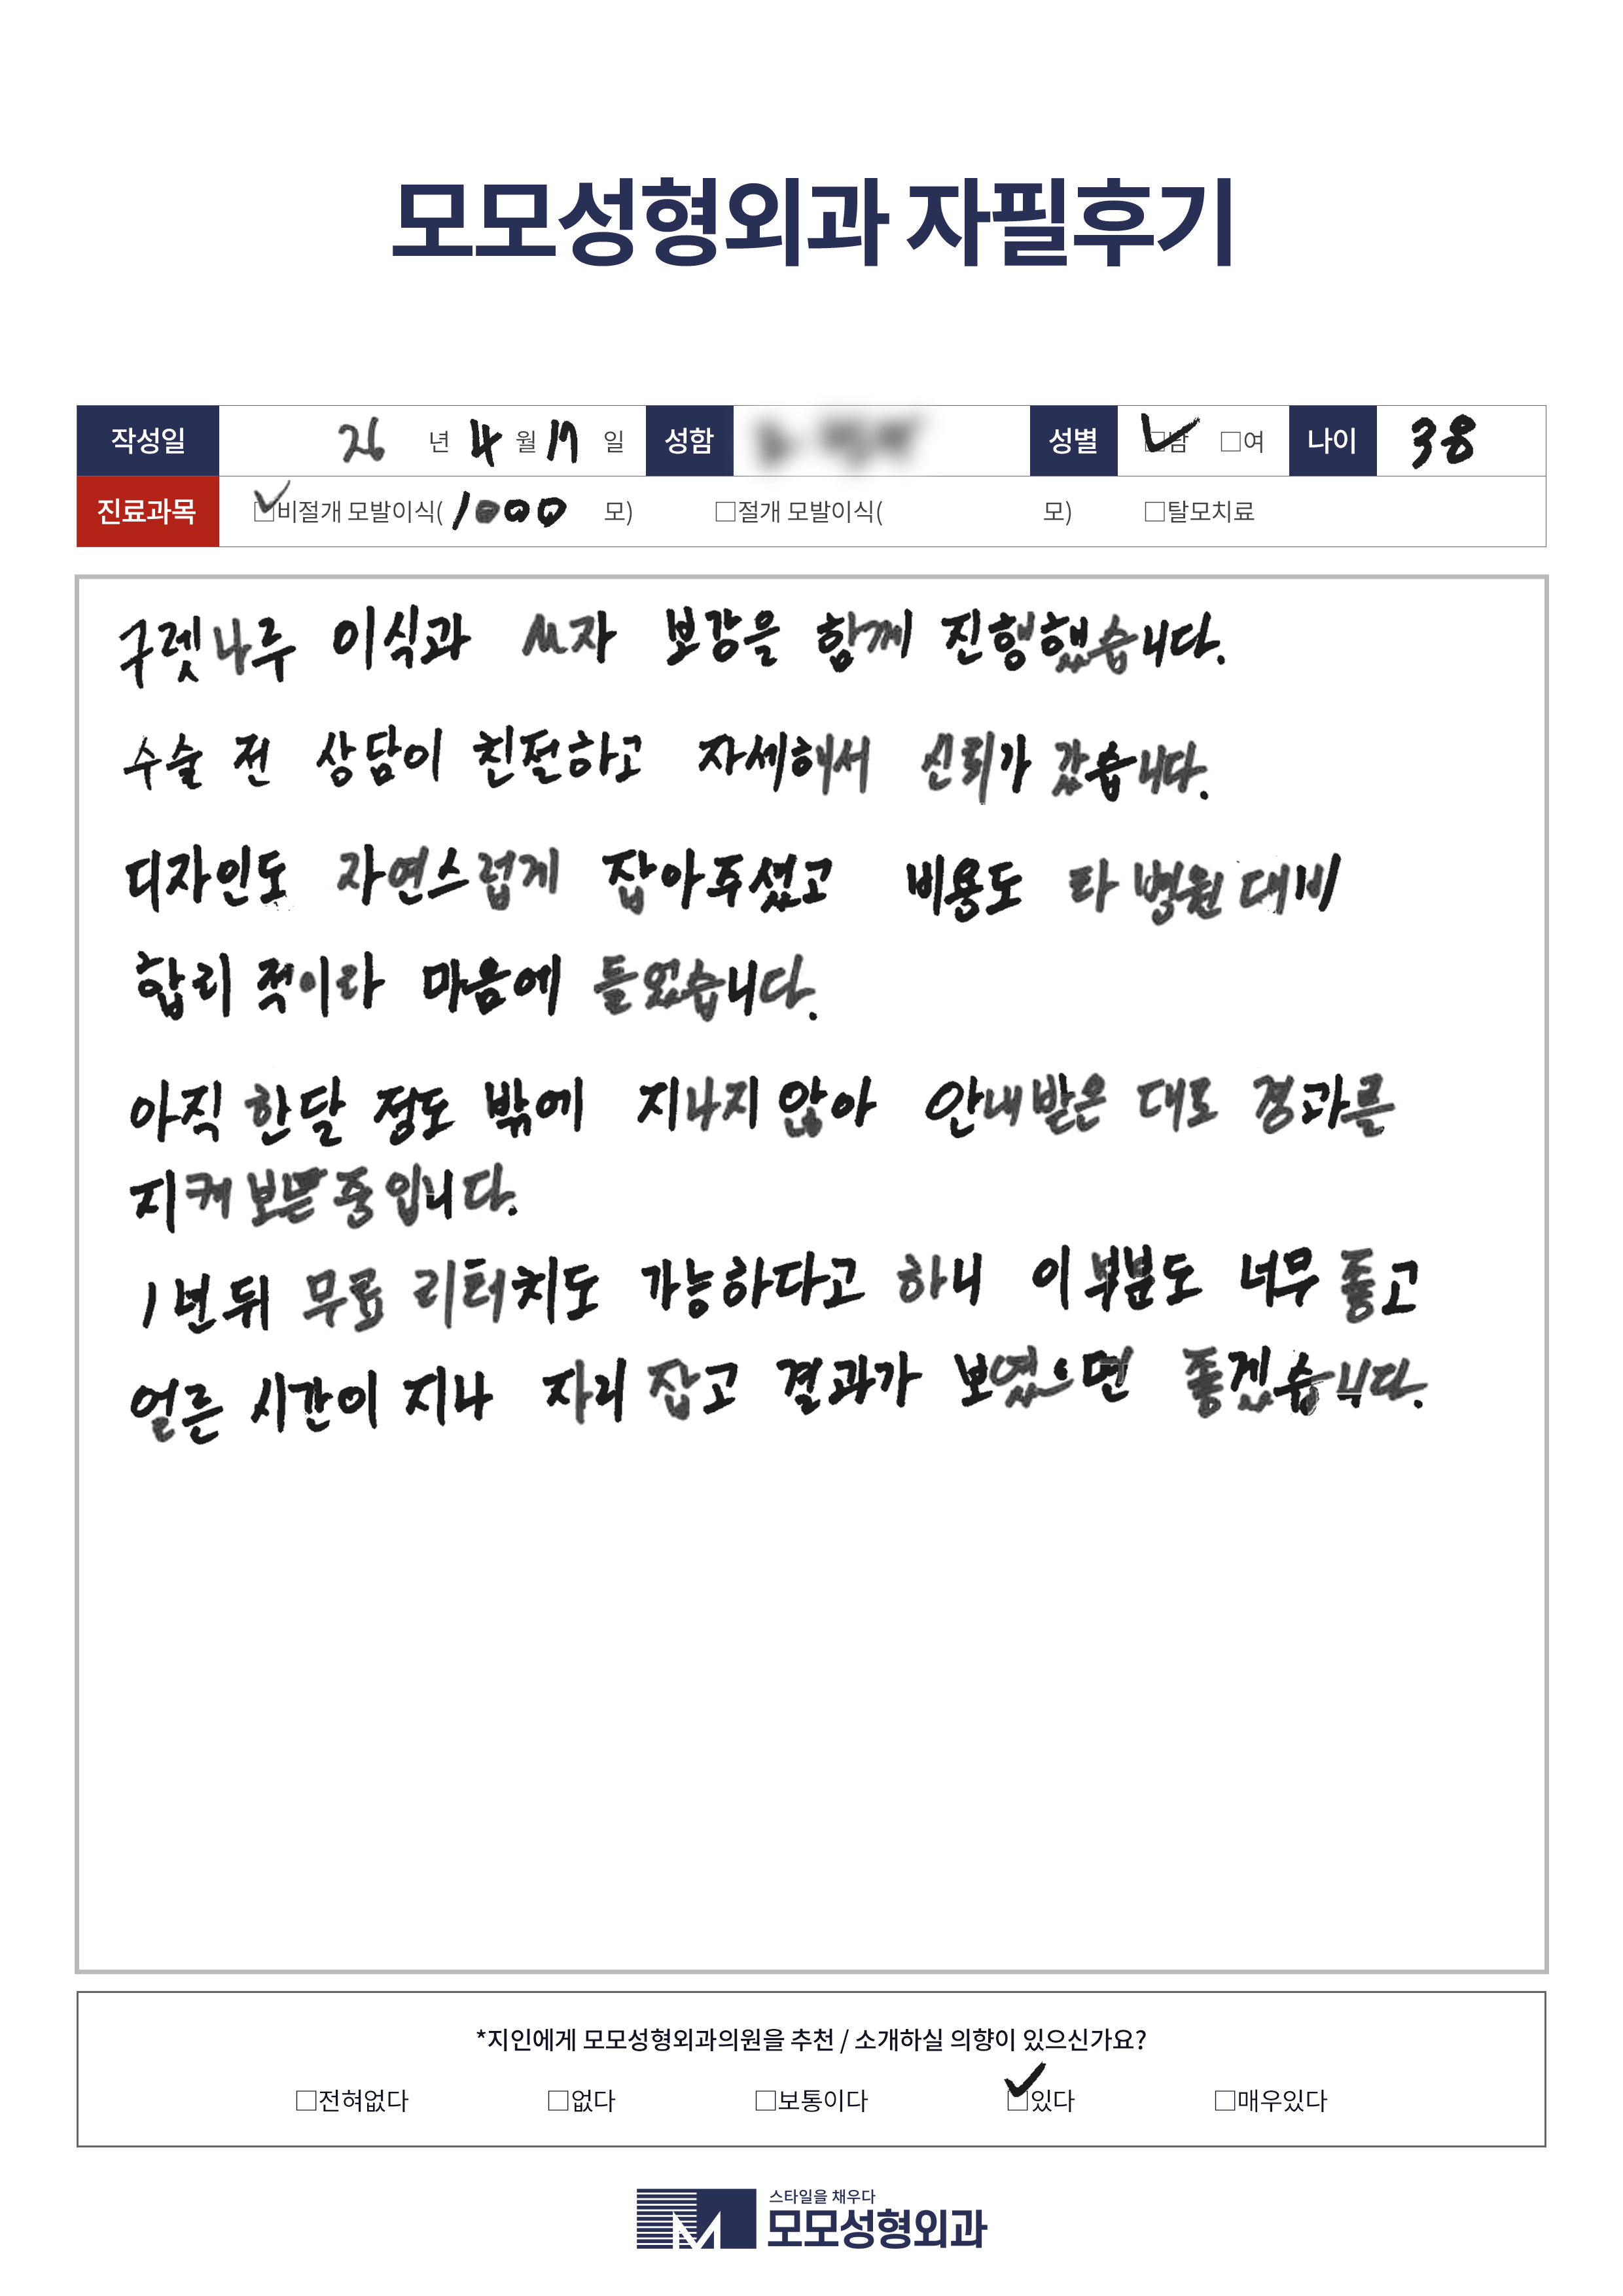 모모성형외과 자필후기
작성일 26 년 4 월 17 일 성함 성별 □남 □여 나이 38
진료과목 □비절개 모발이식( 1000 모) □절개 모발이식( 모) □탈모치료
구렛나루 이식과 M자 보강을 함께 진행했습니다.
수술 전 상담이 친절하고 자세해서 신뢰가 갔습니다.
디자인도 자연스럽게 잡아주셨고 비용도 타 병원 대비
합리적이라 마음에 들었습니다.
아직 한달 정도 밖에 지나지 않아 안내받은 대로 경과를
지켜 중입니다.
1년뒤 무료 리터치도 가능하다고 하니 이 부분도 너무 좋고
얼른 시간이 지나 자리 잡고 결과가 보였으면 좋겠습니다.
*지인에게 모모성형외과의원을 추천 / 소개하실 의향이 있으신가요?
□전혀없다 □없다 □보통이다 □있다 □매우있다
스타일을 채우다
모모성형외과